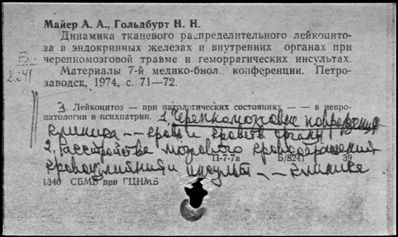 Майер А. А., Гольдбурт Н. Н.
Динамика тканевого распределительного лейкоцито-
за в эндокринных железах и внутренних органах при
черепномозговой травме и геморрагических инсультах.
Материалы 7-й медико-биол. конференции. Петро-
заводск, 1974, с. 71—72.
3. Лейкоцитоз — при патологических состояниях — — в невро-
патологии и психиатрии. 1. Черепномозговые повреждения
клиника — — кровь и
2. Расстройства мозгового кровообращения
П-7-7а Б/8241 39
кровоизлияния и инсульт — — клиника
1346 СБМБ при ГЦНМБ